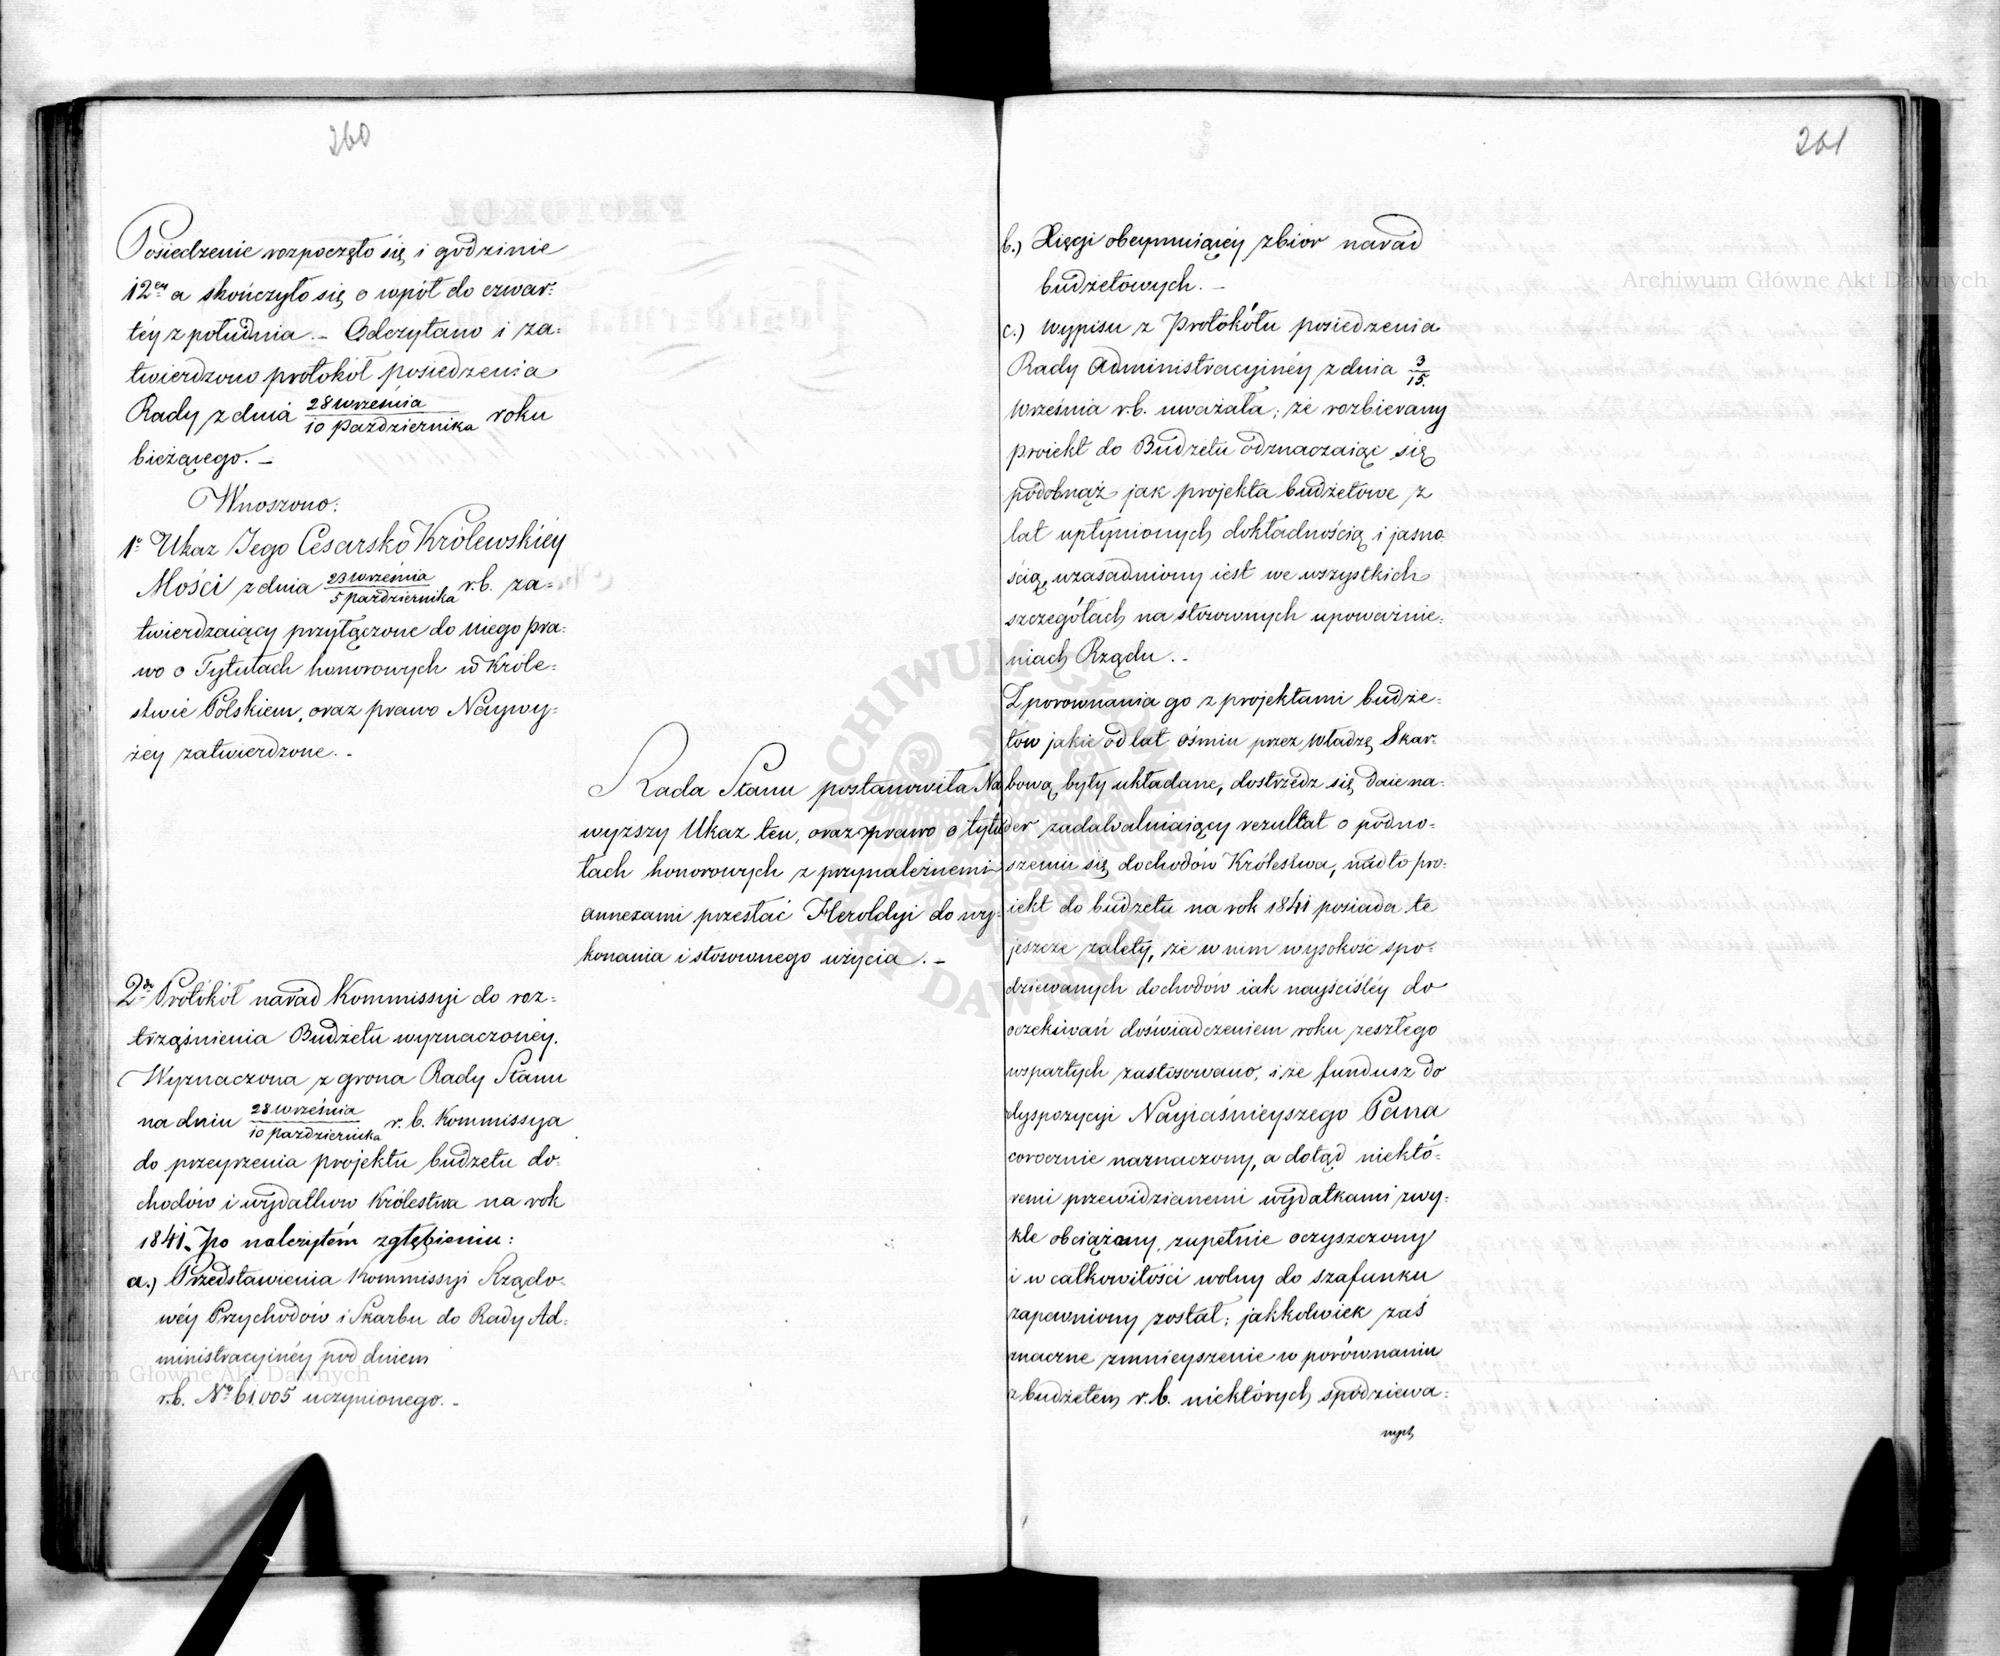 260
Posiedzenie rozpoczęło się i godzinie
12ey a skończyło się o wpół do czwar:
téy z południa. – Odczytano i za:
twierdzono protokół posiedzenia
Rady z dnia 28 września / 10 października roku
bieżącego. –
Wnoszono:
1o Ukaz Jego Cesarsko Królewskiéy
Mości z dnia 23 września / 5 października r.b. za=
twierdzaiący przyłączone do niego pra:
wo o Tytułach honorowych w Króle=
stwie Polskiem, oraz prawo Naywy=
żéy zatwierdzone. –
Rada Stanu postanowiła Na
wyższy Ukaz ten, oraz prawo o tytu
łach honorowych z przynależnemi
annexami przesłać Heroldyi do wy=
konania i stosownego użycia. –
2do Protokół narad Kommissyi do roz=
trząśnienia Budżetu wyznaczonéy.
Wyznaczona z grona Rady Stanu
na dniu 28 września / 10 października r. b. Kommissya
do przeyrzenia projektu budżetu do=
chodów i wydatkow Królestwa na rok
1841. Po należytém zgłębieniu:
a.) Przedstawienia Kommissyi Rządo=
wéy Przychodów i Skarbu do Rady Ad=
ministracyinéy pod dniem
r.b. No 61,005 uczynionego. –
261
b.) Xięgi obeymuiącéy zbiór narad
budżetowych. –
c.) wypisu z Protokółu posiedzenia
Rady Administracyinéy z dnia 3/15.
Września r.b. uważała; że rozbierany
proiekt do Budżetu odznaczaiąc się
podobnaż jak projekta budżetowe z
lat upłynionych dokładnością i jasno
ścią, uzasadniony iest we wszystkich
szczegółach na stosownych upoważnie:
niach Rządu. –
Z porownania go z projektami budże=
tów jakie od lat ośmiu przez Władzę Skar=
bową były układane, dostrzédz się daie na=
der zadalwalniaiący rezultat o podno=
szeniu się dochodów Królestwa, nadto pro=
iekt do budżetu na rok 1841 posiada te
jeszcze zalety, że w nim wysokość spo=
dziewanych dochodów iak nayściśléy do
oczekiwań doświadczeniem roku zeszłego
wspartych zastosowano, i że fundusz do
dyspozycyi Nayiaśnieyszego Pana
corocznie naznaczony, a dotąd niektó=
remi przewidzianemi wydatkami zwy=
kle obciążany, zupełnie oczyszczony
i w całkowitości wolny do szafunku
zapewniony został; jakkolwiek zaś
znaczne zmnieyszenie w porównaniu
z budżetem r.b. niektórych spodziewa=
nych
Archiwum Główne Akt Dawnych
Archiwum Główne Akt Dawnych